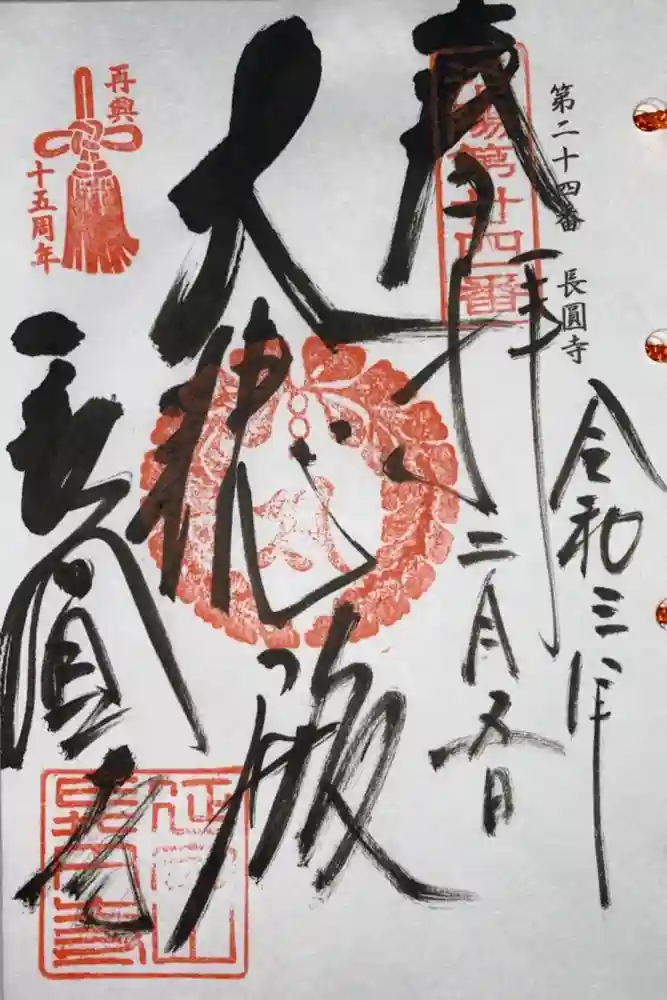 第二十四番 長圓寺
奉拝
場第廿四番
令和三年
二月五日
大悲殿
長圓寺
再興
十五周年